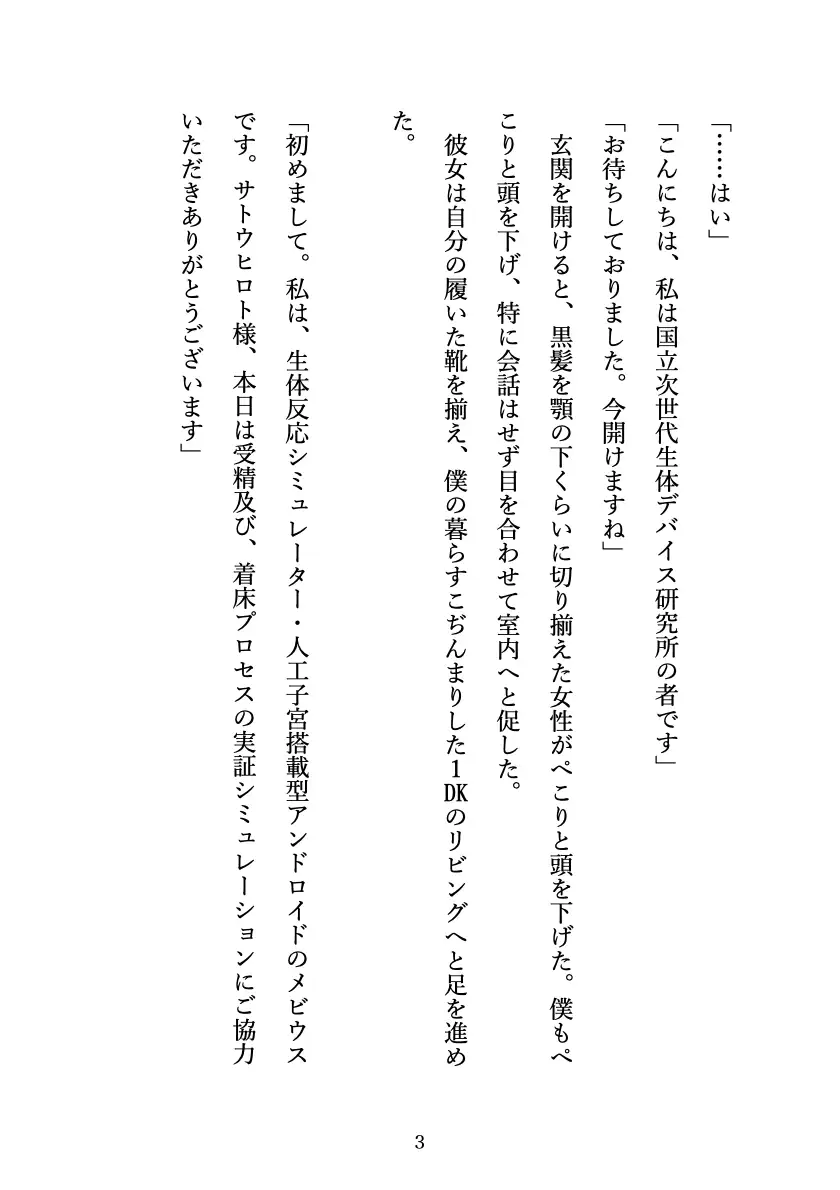 「……はい」
「こんにちは、私は国立次世代生体デバイス研究所の者です」
「お待ちしておりました。今開けますね」
　玄関を開けると、黒髪を顎の下くらいに切り揃えた女性がぺこりと頭を下げた。僕もぺ
こりと頭を下げ、特に会話はせず目を合わせて室内へと促した。
　彼女は自分の履いた靴を揃え、僕の暮らすこぢんまりした１DKのリビングへと足を進め
た。
「初めまして。私は、生体反応シミュレーター・人工子宮搭載型アンドロイドのメビウス
です。サトウヒロト様、本日は受精及び、着床プロセスの実証シミュレーションにご協力
いただきありがとうございます」
3